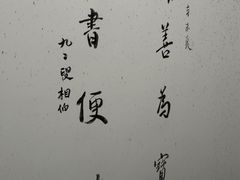 辛未
善為寶
書便
九二叟相伯